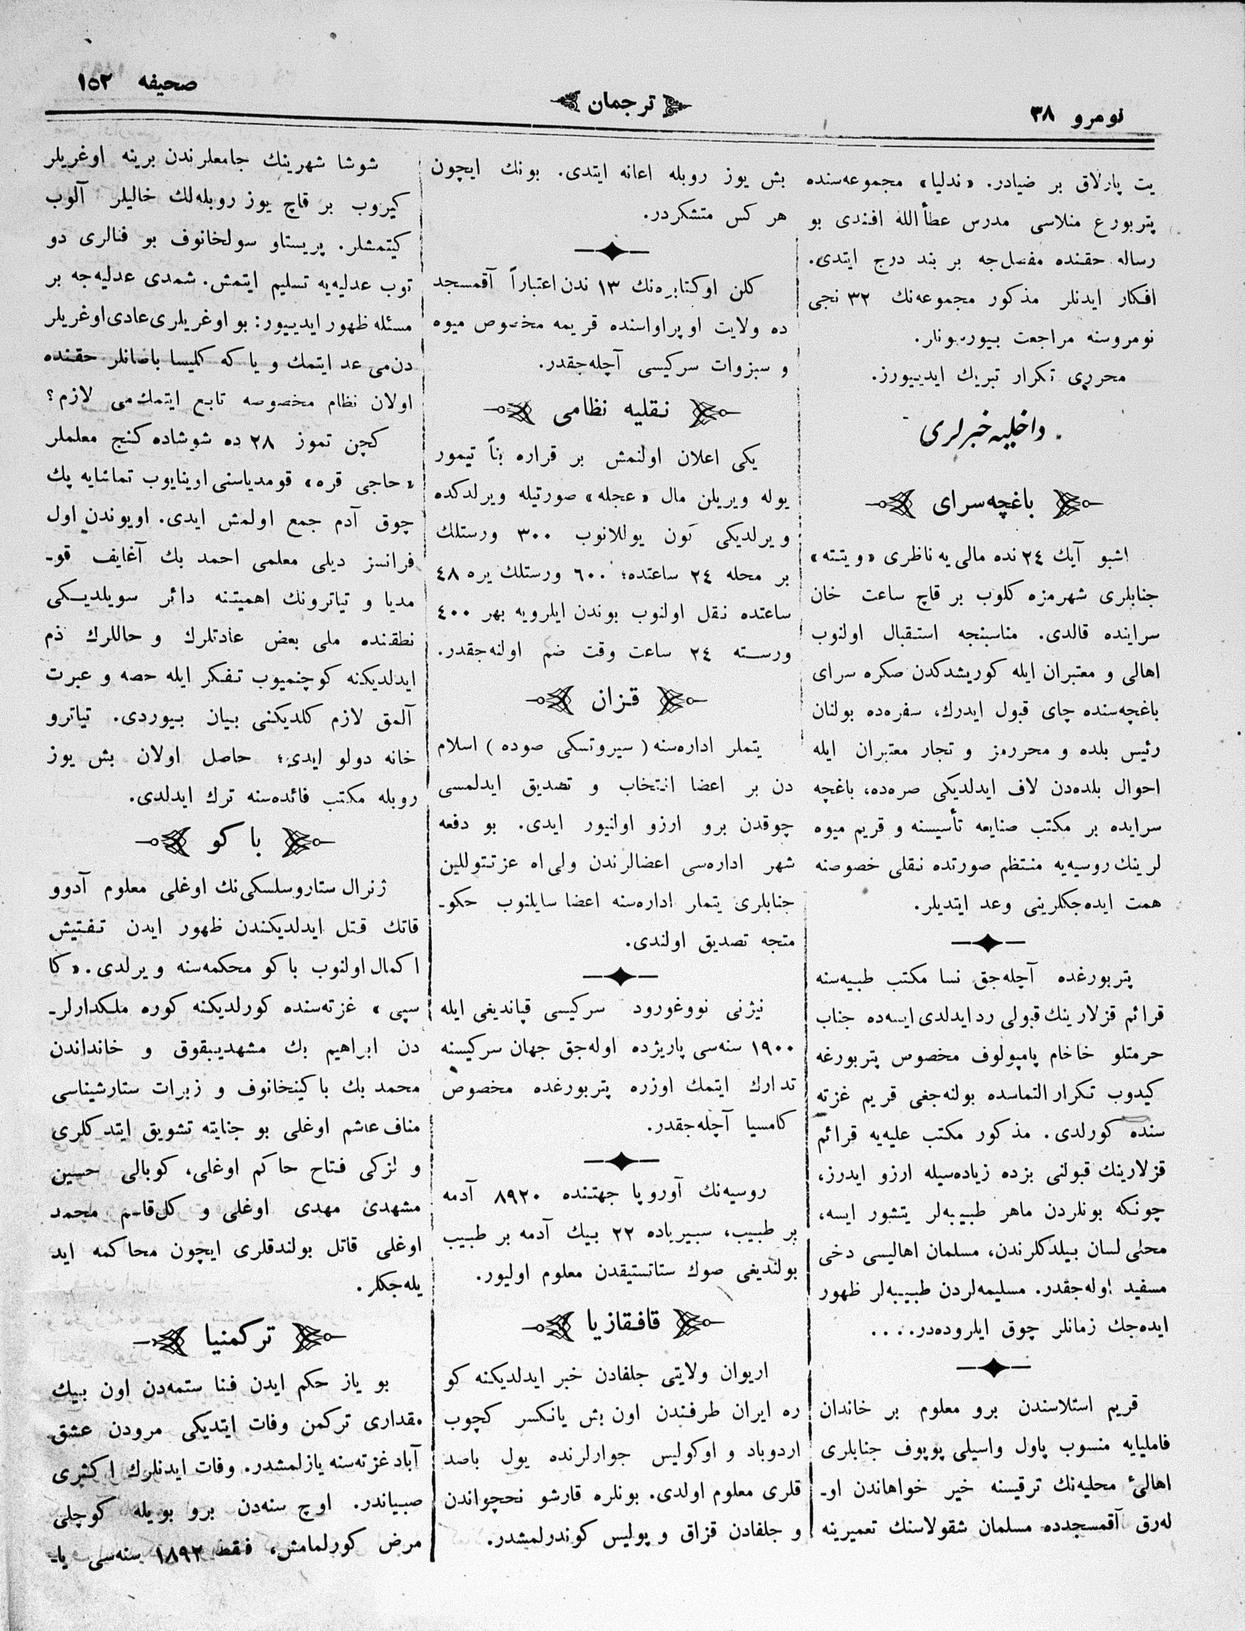 نومرو ٣٨
ترجمان
صحیفه ١٥٢
یت پارلاق بر ضیادر. «ندلیا» مجموعه‌سنده
پتربورغ منلاسی مدرس عطأ الله افندی بو
رساله حقنده مفصل‌جه بر بند درج ایتدی.
افکار ایدنلر مذکور مجموعه‌نك ٣٢ نجی
نومروسنه مراجعت بیورسونلر.
محرری تکرار تبریك ایدییورز.
داخلیه خبرلری
باغچه‌سرای
اشبو آیك ٢٤ نده مالی یه ناظری «ویتته»
جنابلری شهرمزه کلوب بر قاچ ساعت خان
سراینده قالدی. مناسبنجه استقبال اولنوب
اهالی و معتبران ایله کوریشدکدن صکره سرای
باغچه‌سنده چای قبول ایدرك، سفره‌ده بولنان
رئیس بلده و محررمز و تجار معتبران ایله
احوال بلده‌دن لاف ایدلدیکی صره‌ده، باغچه
سرایده بر مکتب صنایعه تأسیسنه و قریم میوه
لرینك روسیه‌یه منتظم صورتده نقلی خصوصنه
همت ایده‌جکلرینی وعد ایتدیلر.
پتربورغده آچله‌جق نسا مکتب طبیه‌سنه
قرائم قزلارینك قبولی رد ایدلدی ایسه‌ده جناب
حرمتلو خاخام پامپولوف مخصوص پتربورغه
کیدوب تکرار التماسده بولنه‌جغی قریم غزته
سنده کورلدی. مذکور مکتب علیه‌یه قرائم
قزلارینك قبولنی بزده زیاده‌سیله ارزو ایدرز،
چونکه بونلردن ماهر طبیبه‌لر یتشور ایسه،
محلی لسان بیلدکلرندن، مسلمان اهالیسی دخی
مسفید اوله‌جقدر. مسلیمه‌لردن طبیبه‌لر ظهور
ایده‌جك زمانلر چوق ایلروده‌در....
قریم استلاسندن برو معلوم بر خاندان
فاملیایه منسوب پاول واسیلی پوپوف جنابلری
اهالیٔ محلیه‌نك ترقیسنه خیر خواهاندن او-
له‌رق آقمسجدده مسلمان شقولاسنك تعمیرینه
بش یوز روبله اعانه ایتدی. بونك ایچون
هر کس متشکردر.
کلن اوکتابره‌نك ١٣ ندن اعتباراً آقمسجد
ده ولایت اوپراواسنده قریمه مخصوص میوه
و سبزوات سرکیسی آچله‌جقدر.
نقلیه نظامی
یکی اعلان اولنمش بر قراره بناً تیمور
یوله ویریلن مال «عجله» صورتیله ویرلدکده
ویرلدیکی کون یوللانوب ٣٠٠ ورستلك
بر محله ٢٤ ساعتده؛ ٦٠٠ ورستلك یره ٤٨
ساعتده نقل اولنوب بوندن ایلرویه بهر ٤٠٠
ورسته ٢٤ ساعت وقت ضم اولنه‌جقدر.
قزان
یتملر اداره‌سنه (سیروتسکی صوده) اسلام
دن بر اعضا انتخاب و تصدیق ایدلمسی
چوقدن برو ارزو اولنیور ایدی. بو دفعه
شهر اداره‌سی اعضالرندن ولی‌اه عزتتوللین
جنابلری یتملر اداره‌سنه اعضا سایلنوب حکو-
متجه تصدیق اولندی.
نیژنی نووغورود سرکیسی قپاندیغی ایله
١٩٠٠ سنه‌سی پاریژده اوله‌جق جهان سرکیسنه
تدارك ایتمك اوزره پتربورغده مخصوص
کامسیا آچله‌جقدر.
روسیه‌نك آوروپا جهتنده ٨٩٢٠ آدمه
بر طبیب، سبیریاده ٢٢ بیك آدمه بر طبیب
بولندیغی صوك ستاتستیقدن معلوم اولیور.
قافقازیا
اریوان ولایتی جلفادن خبر ایدلدیکنه کو
ره ایران طرفندن اون بش یانکسر کچوب
اردوباد و اوکولیس جوارلرنده یول باصد
قلری معلوم اولدی. بونلره قارشو نخچواندن
و جلفادن قزاق و پولیس کوندرلمشدر.
شوشا شهرینك جامعلرندن برینه اوغریلر
کیروب بر قاچ یوز روبله‌لك خالیلر آلوب
کیتمشلر. پریستاو سولخانوف بو فنالری دو
توب عدلیه‌یه تسلیم ایتمش. شمدی عدلیه‌جه بر
مسئله ظهور ایدییور: بو اوغریلری عادی اوغریلر
دن‌می عد ایتمك و یا که کلیسا باصانلر حقنده
اولان نظام مخصوصه تابع ایتمك‌می لازم؟
کچن تموز ٢٨ ده شوشاده کنج معلملر
«حاجی قره» قومدیاسنی اوینایوب تماشایه پك
چوق آدم جمع اولمش ایدی. اویوندن اول
فرانسز دیلی معلمی احمد بك آغایف قو-
مدیا و تیاترونك اهمیتنه دائر سویلدیکی
نطقنده ملی بعض عادتلرك و حاللرك ذم
ایدلدیکنه کوچنمیوب تفکر ایله حصه و عبرت
آلمق لازم کلدیکنی بیان بیوردی. تیاترو
خانه دولو ایدی؛ حاصل اولان بش یوز
روبله مکتب فائده‌سنه ترك ایدلدی.
باکو
ژنرال ستاروسلسکی‌نك اوغلی معلوم آدوو
قاتك قتل ایدلدیکندن ظهور ایدن تفتیش
اکمال اولنوب باکو محکمه‌سنه ویرلدی. «کا
سپی» غزته‌سنده کورلدیکنه کوره ملکدارلر-
دن ابراهیم بك مشهدیبقوق و خانداندن
محمد بك باکینخانوف و زبرات ستارشیناسی
مناف عاشم اوغلی بو جنایته تشویق ایتدکلری
و لزکی فتاح حاکم اوغلی، کوبالی حسین
مشهدی مهدی اوغلی و کل‌قاسم محمد
اوغلی قاتل بولندقلری ایچون محاکمه اید
یله‌جکلر.
ترکمنیا
بو یاز حکم ایدن فنا ستمه‌دن اون بیك
مقداری ترکمن وفات ایتدیکی مرودن عشق
آباد غزته‌سنه یازلمشدر. وفات ایدنلرك اکثری
صبیاندر. اوچ سنه‌دن برو بویله کوچلی
مرض کورلمامش، فقط ١٨٩٢ سنه‌سی یا-